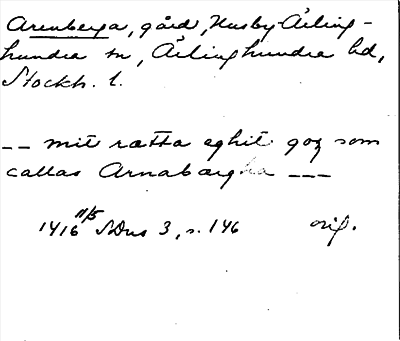 Arenberga, gård, Husby-Ärling-
hundra sn, Ärlinghundra hd,
Stockh. l.
-- mit rætta eghit goz som
callas Arnabærgha ---
1416 11/5 SDns 3, s. 146 orig.